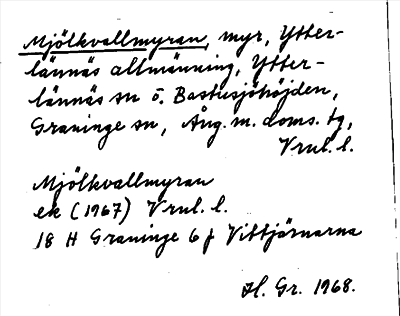 Mjölkvallmyran, myr, Ytter-
lännäs allmänning, Ytter-
lännäs sn ö. Bastusjöhöjden,
Graninge sn, Ång. m. doms. tg,
Vrul. l.
Mjölkvallmyran
ek (1967) Vrul. l.
18 H Graninge 6 f Vittjärnarna
H. Gr. 1968.